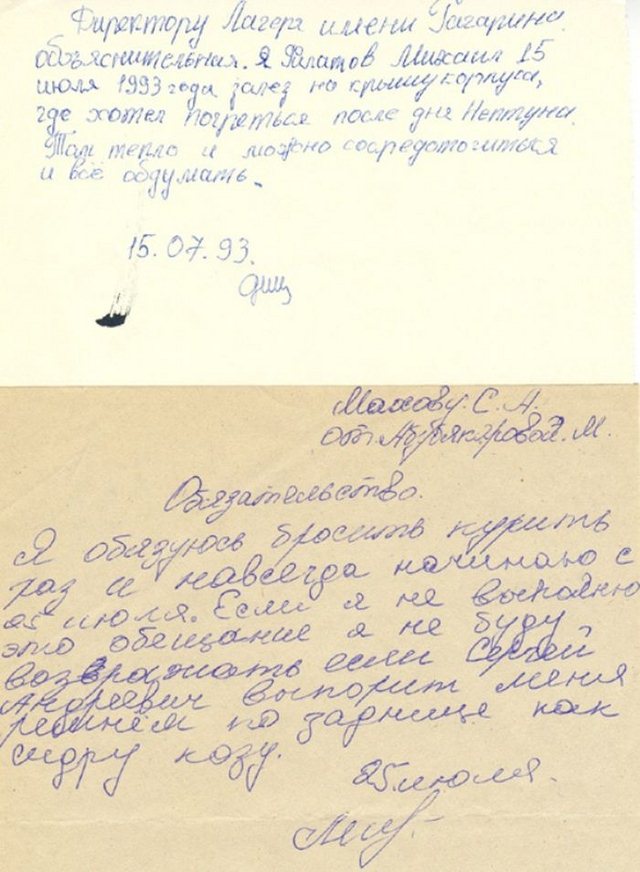 Директору Лагеря имени Гагарина.
объяснительная. Я Филатов Михаил 15
июля 1993 года залез на крышу корпуса,
где хотел погреться после дня Нептуна.
Там тепло и можно сосредоточиться
и всё обдумать.
15.07.93.
Махову С. А.
от М.
Обязательство.
Я обязуюсь бросить курить
раз и навсегда начинаю с
25 июля. Если я не выполню
это обещание я не буду
возвражать если Сергей
Андреевич выпорит меня
ремнём по заднице как
сидру козу.
25 июля.